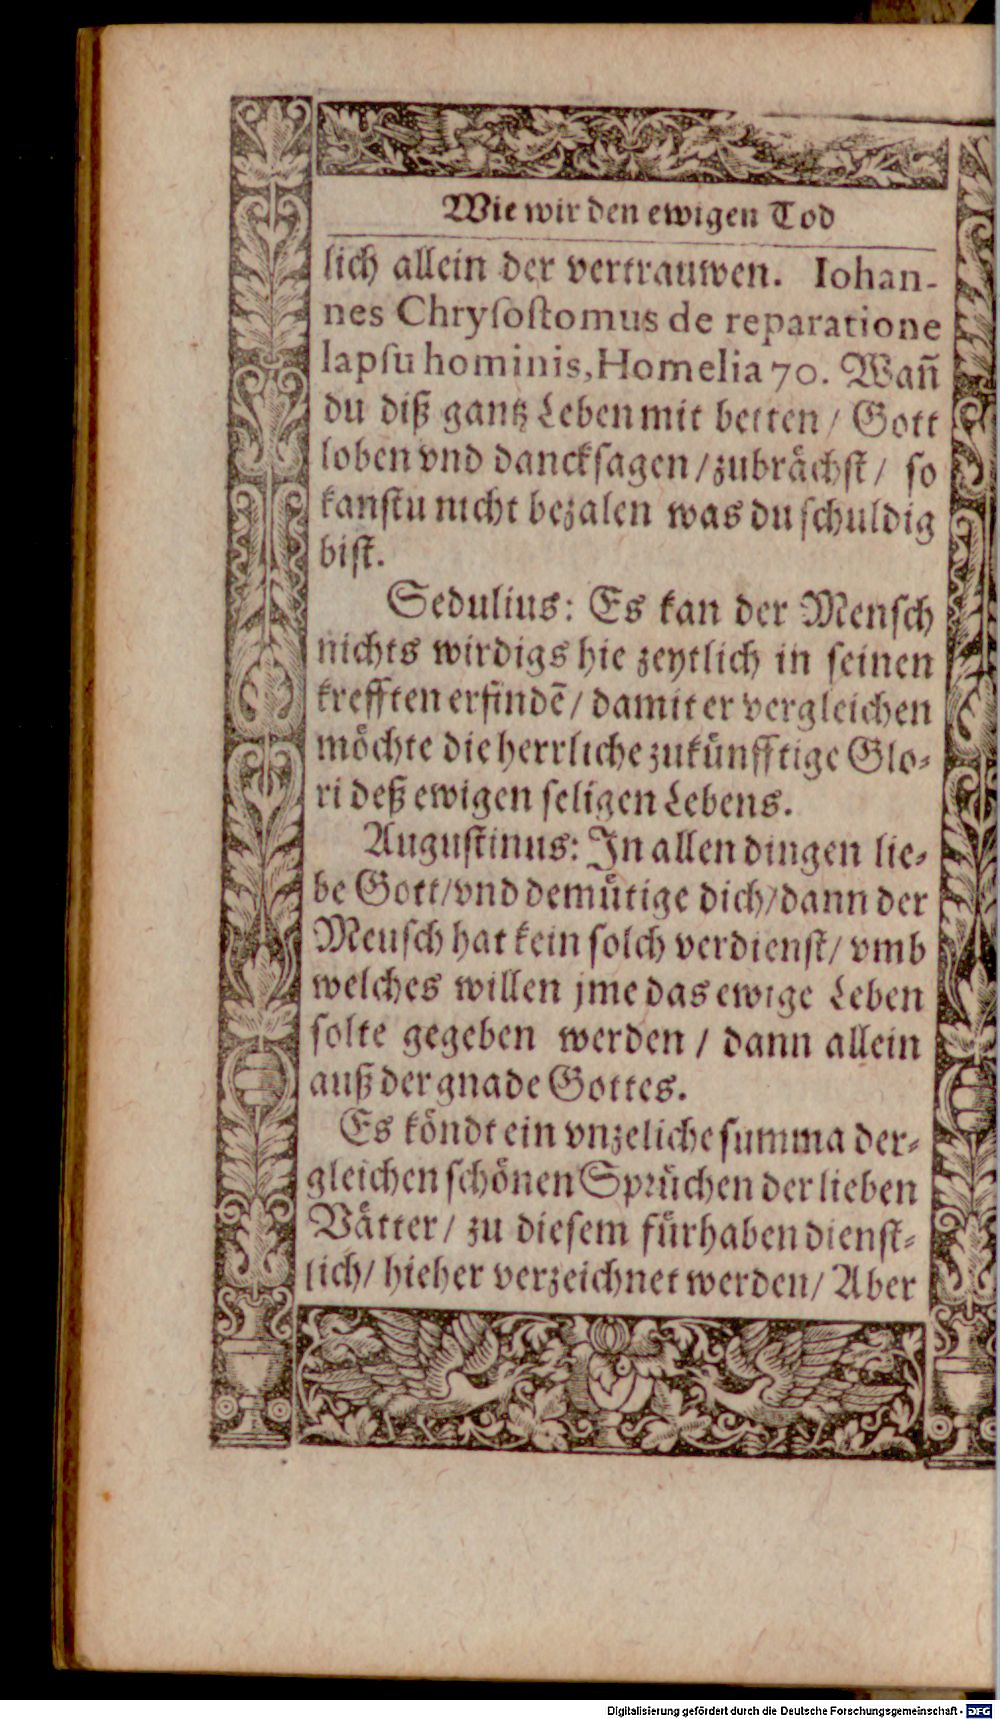 Wie wir den ewigen Tod
lich allein der vertrauwen. Iohan-
nes Chryſoſtomus de reparatione
lapſu hominis, Homelia 70. Wañ
du diß gantz Leben mit betten / Gott
loben vnd danckſagen / zubrächſt / ſo
kanſtu nicht bezalen was du ſchuldig
biſt.
Sedulius: Es kan der Menſch
nichts wirdigs hie zeytlich in ſeinen
krefften erfindē / damit er vergleichen
möchte die herrliche zukünfftige Glo-
ri deß ewigen ſeligen Lebens.
Auguſtinus: In allen dingen lie-
be Gott / vnd demütige dich / dann der
Menſch hat kein ſolch verdienſt / vmb
welches willen jme das ewige Leben
ſolte gegeben werden / dann allein
auß der gnade Gottes.
Es köndt ein vnzeliche ſumma der-
gleichen ſchönen Sprüchen der lieben
Vätter / zu dieſem fürhaben dienſt-
lich / hieher verzeichnet werden / Aber
Digitalisierung gefördert durch die Deutsche Forschungsgemeinschaft - DFG